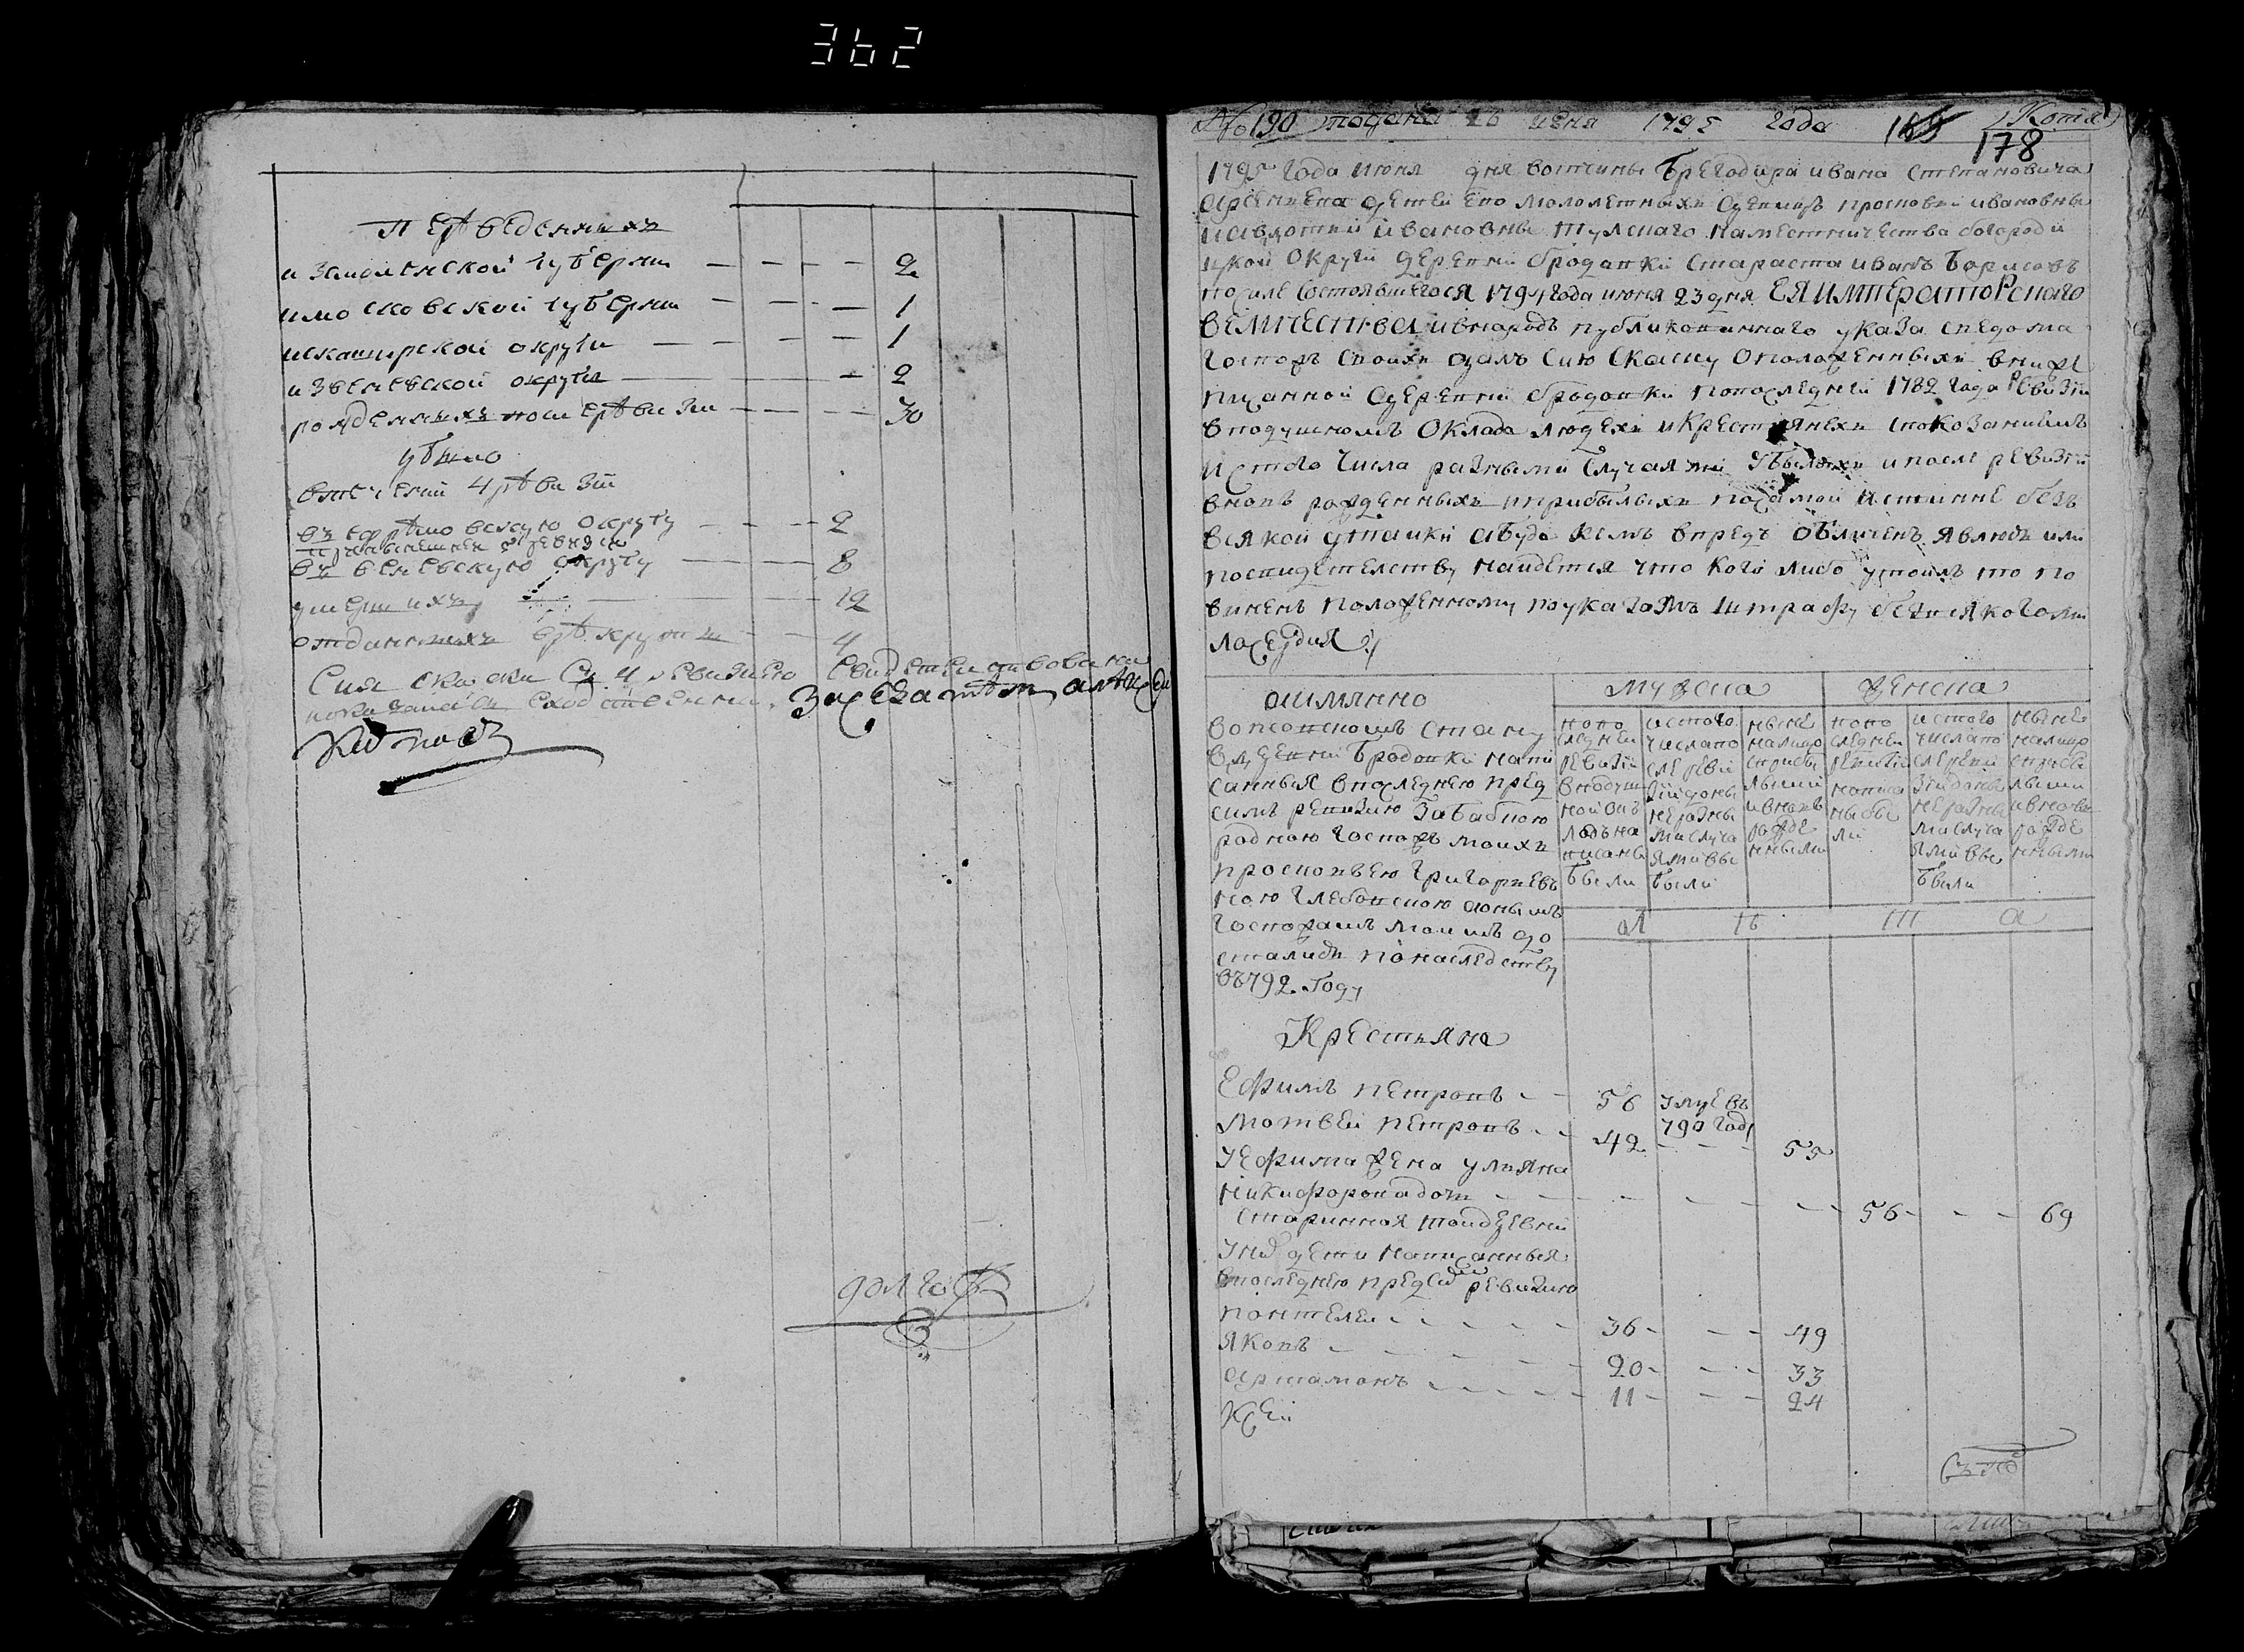 362
переведенныхъ
измоленской губернии — — — — 2
имосковской губернии — — — 1
искаширской округи — — — — 1
извеневской округи — — 2
рожденныхъ после ревизии — — — — 30
убыло
втечении 4 ревизии
въ ефремовскую округу — — — 2
въ веневскую округу — — — 8
умершихъ — 12
отданныхъ врекруты — — 4
Сия сказка Съ 4 ревизиею свидетельствована
показание сходственны.
№ 190 подана 16 июня 1795 года 165 Копия
178
1795 года июня дня вотчины Брегодира ивана степановича
детей его молодетныхъ девицъ просковьи ивановны
ивановны тулскаго наместничества богороди
цкой округи деревни бродовки стараста иванъ борисовъ
посиле состоявшегося 1794 года июня 23 дня ЕЯ ИМПЕРАТОРСКАГО
ВЕЛИЧЕСТВА ивнародъ публикованнаго указа сведома
госпожъ своихъ далъ сию скаску ополаженныхъ вниже
писанной деревни бродовки попоследней 1782 года ревизии
вподушномъ окладе людехъ икрестьянехъ спокозаниемъ
истого числа разными случаями убылыхъ ипосле ревизии
вновь рожденныхъ иприбылыхъ посамой истинне безъ
всякой утайки абуде кемъ впредъ обличенъ явлюсь или
посвидетелству найдется что кого либо утоилъ то по
виненъ положенному поуказомъ штрафу безвсякого ми
лосердия
аимянно
вопсовскомъ стану
вдеревни бродовки напи
санныя впоследнею пред
симъ ревизию забабкою
родною госпожъ моихъ
просковьею григорьевъ
ною глебовскою аонымъ
госпожамъ моимъ до
сталися понаследству
въ792 году
мужеска женска
попо
следней
ревизии
вподуш
ной окъ
ладъ на
писаны
были
истого
числапо
сле реви
зии доны
не разны
ми случа
ями вы
были
ныне
налицо
сприбы
лыми
ивновъ
рожде
нными
попо
следней
ревизии
написа
ны бы
ли
истого
числапо
сле ревизи
зии доны
не разны
ми случа
ями вы
были
ныне
налицо
сприбы
лыми
ивновь
рожде
нными
Л Ѣ Т А
Крестьяна
Ефимъ петровъ — — 56 умре въ
790 году
мотвей петровъ — — 42 — — 55
уефима жена ульяна
никифорова дочь — — — — — 56 — — — 69
старинная тойдеревни
унихъ дети написанныя
впоследнею предсей ревизию
понтелей — — — — 36 — — — 49
яковъ — — — — 20 — — — 33
артамонъ — — — — 11 — — — 24